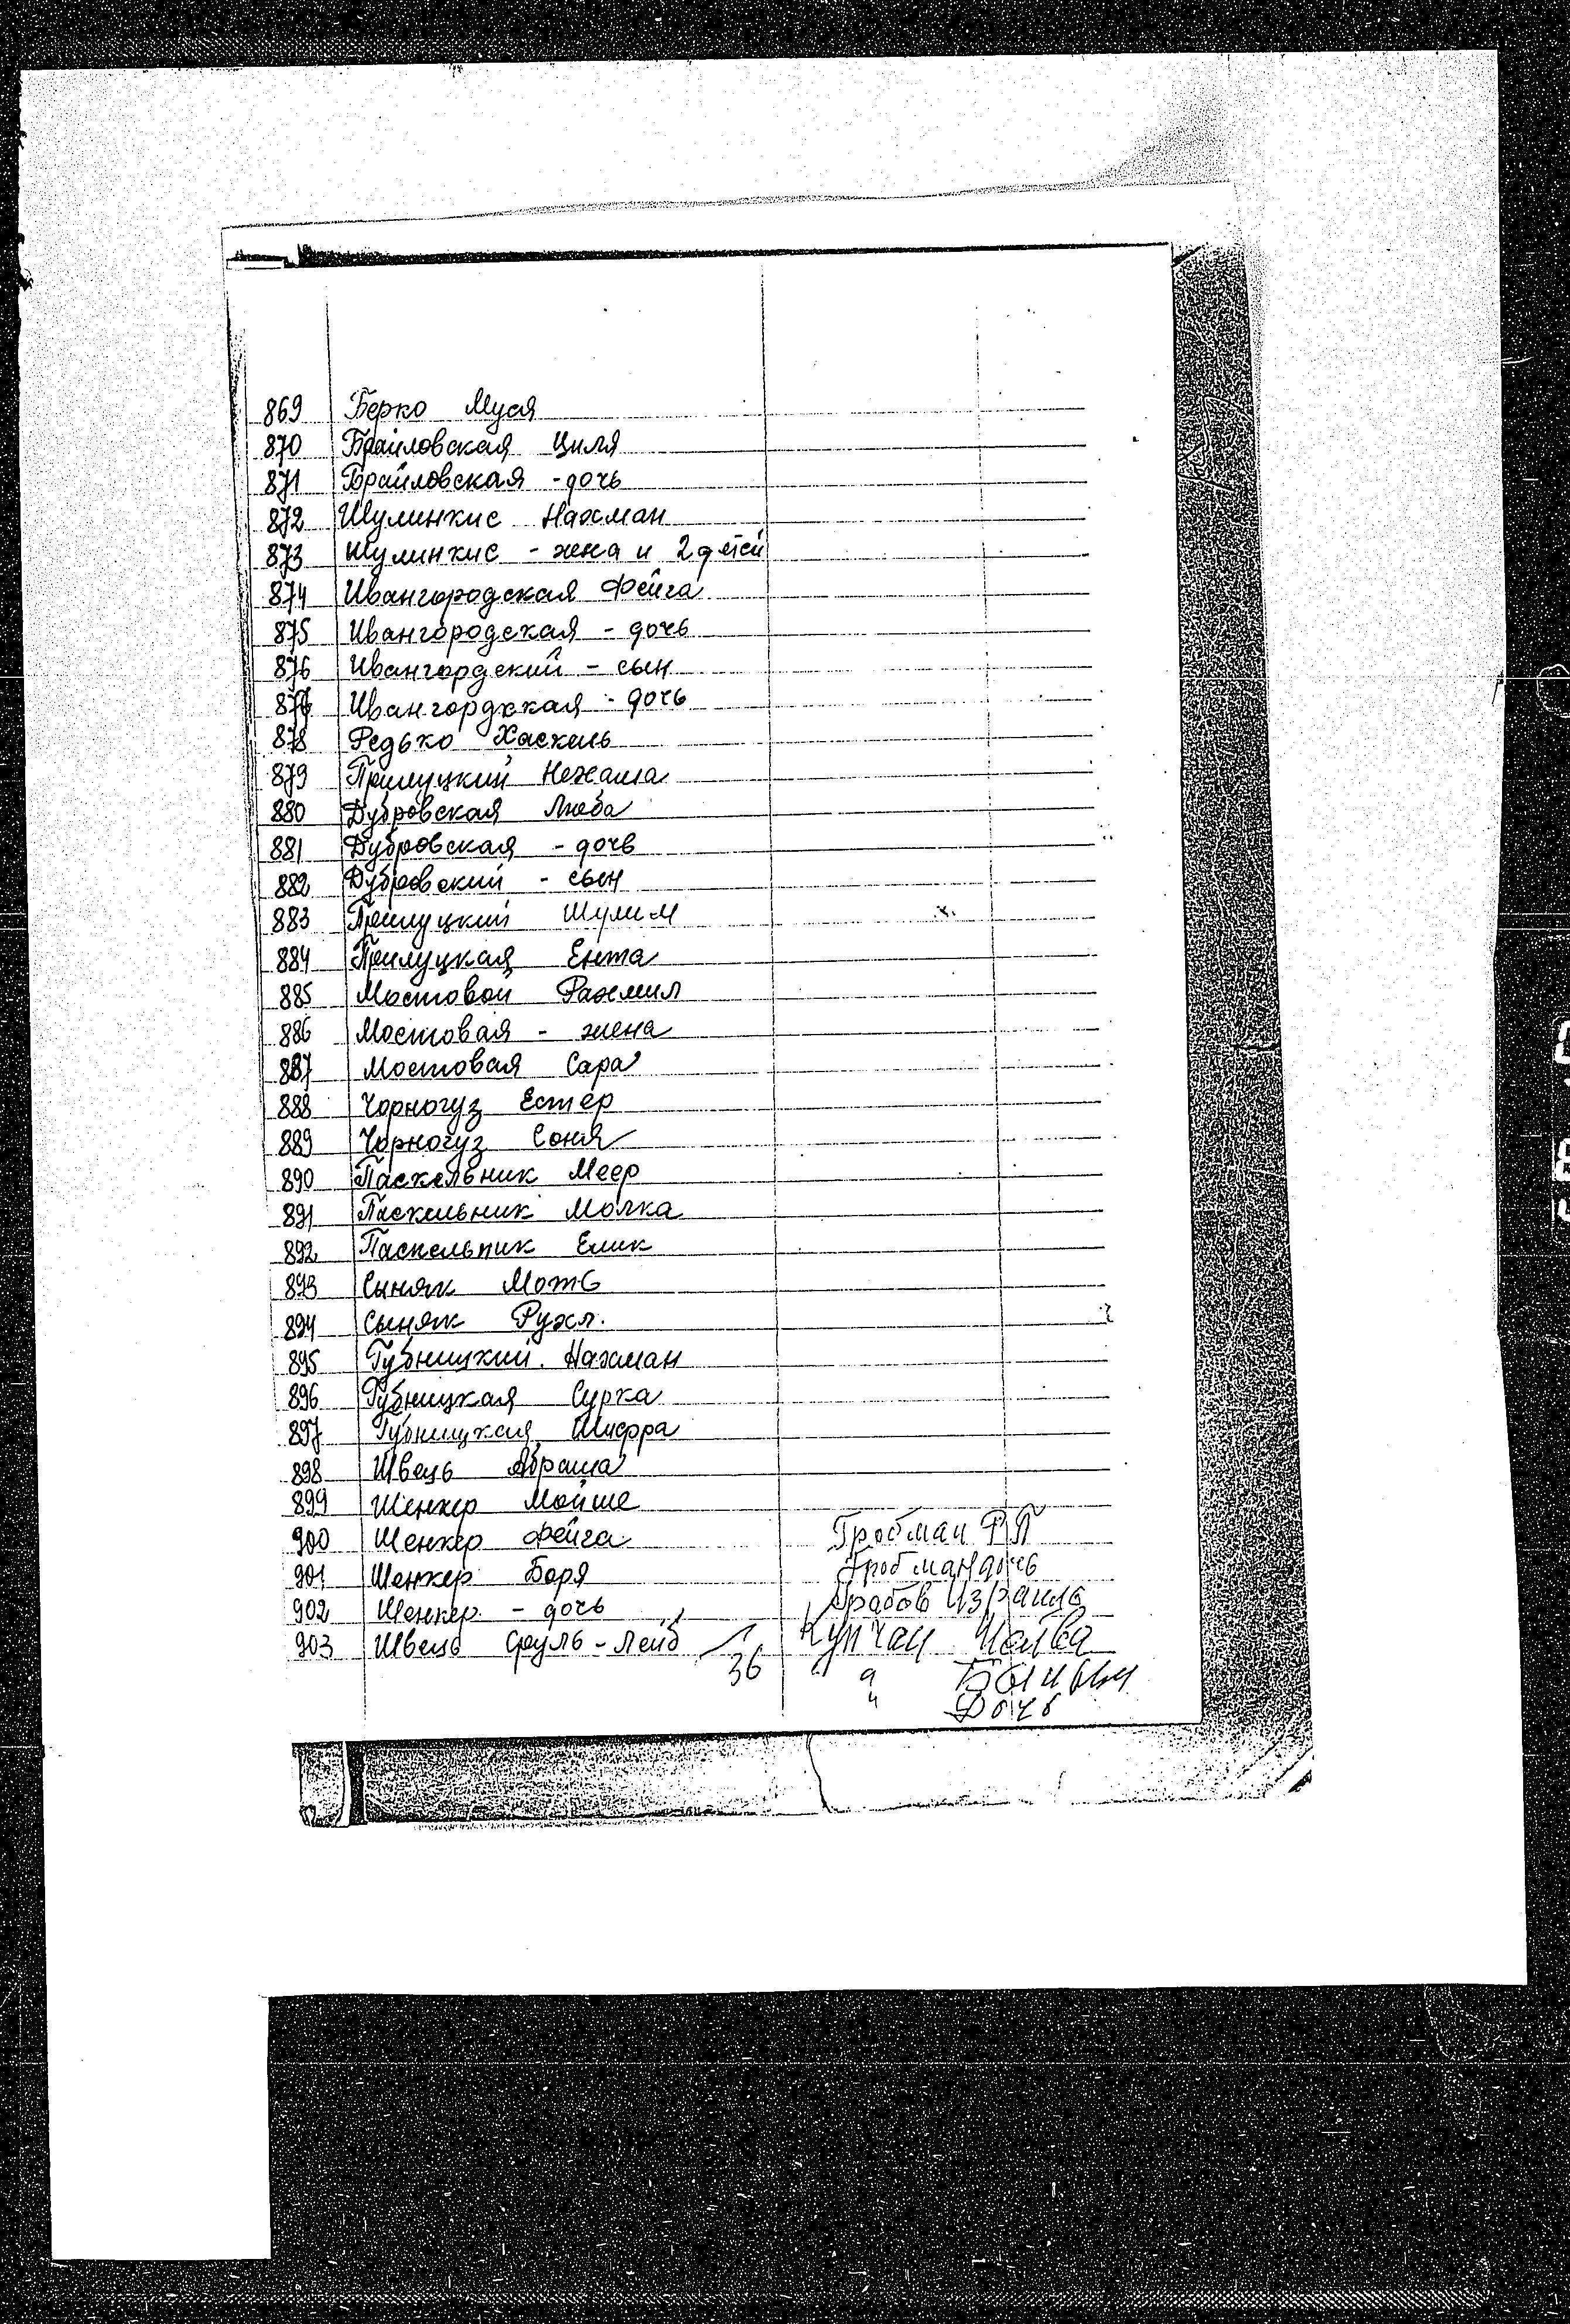 869 Берко Муся
870 Браиловская Циля
871 Браиловская - дочь
872 Шулинкис Нахман
873 Шулинкис - жена и 2 детей
874 Ивангородская Фейга
875 Ивангородская - дочь
876 Ивангордский - сын
877 Ивангордская - дочь
878 Редько Хаскель
879 Прилуцкий Нехама
880 Дубровская Люба
881 Дубровская - дочь
882 Дубровский - сын
883 Прилуцкий Шулим
884 Прилуцкая Ента
885 Мостовой Рахмил
886 Мостовая - жена
887 Мостовая Сара
888 Чорногуз Естер
889 Чорногуз Соня
890 Паскельник Меер
891 Паскельник Малка
892 Паскельник Елик
893 Сыняк Моть
894 Сыняк Рухл.
895 Губницкий Нахман
896 Губницкая Сурка
897 Губницкая Шифра
898 Швець Абраша
899 Шенкер Мойше
900 Шенкер Фейга Гробман Р П
901 Шенкер Боря Гробман дочь
902 Шенкер - дочь Грабов Израиль
903 Швець Сруль-Лейб Купчан
36
Дочь